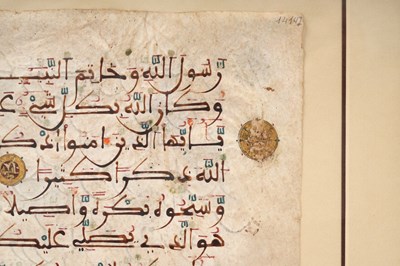 رسول الله وخاتم النبيـ
وكان الله بكل شىء عـ
يأيها الذين امنوا اذكـ
الله ذكرا كثيرا
وسبحوه بكرة وأصيلا
هو الذي يصلي عليكـ